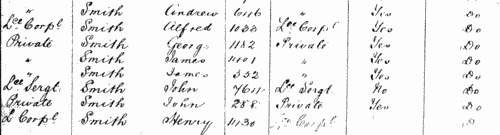 " Smith Andrew 6446 " Yes Do
Lce Corpl Smith Alfred 1038 Lce Corpl Yes Do
Private Smith George 1182 Private Yes Do
" Smith James 1101 " Yes Do
" Smith James 332 " Yes Do
Lce Sergt Smith John 7611 Lce Sergt No Do
Private Smith John 288 Private Yes Do
L Corpl Smith Henry 1130 Corpl Do